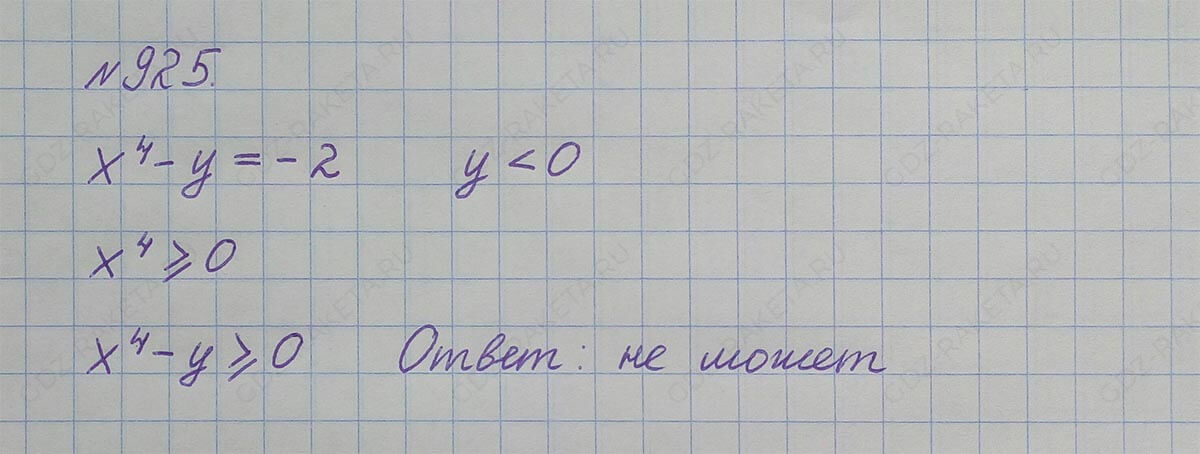 №925.
x⁴ - y = -2    y < 0
x⁴ ⩾ 0
x⁴ - y ⩾ 0    Ответ: не может
GDZ-RAKETA.RU